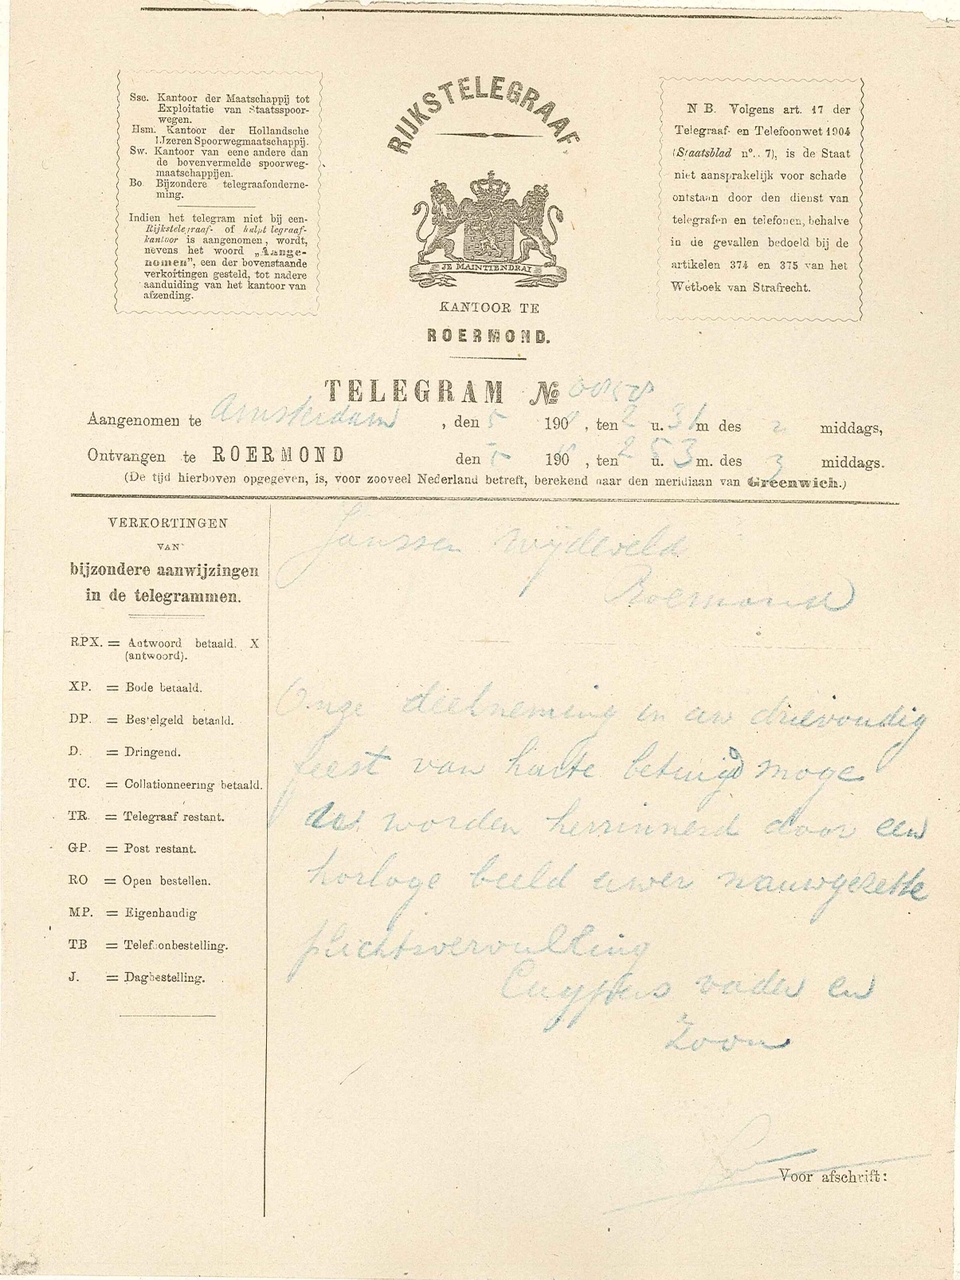 Sse. Kantoor der Maatschappij tot
Exploitatie van Staatsspoor-
wegen.
Hsm. Kantoor der Hollandsche
IJzeren Spoorwegmaatschappij.
Sw. Kantoor van eene andere dan
de bovenvermelde spoorweg-
maatschappijen.
Bo Bijzondere telegraafonderne-
ming.
Indien het telegram niet bij een
Rijkstelegraaf- of hulptelegraaf-
kantoor is aangenomen, wordt,
nevens het woord „Aange-
nomen”, een der bovenstaande
verkortingen gesteld, tot nadere
aanduiding van het kantoor van
afzending.
RIJKSTELEGRAAF
JE MAINTIENDRAI
KANTOOR TE
ROERMOND.
N B. Volgens art. 17 der
Telegraaf- en Telefoonwet 1904
(Staatsblad n°. 7), is de Staat
niet aansprakelijk voor schade
ontstaan door den dienst van
telegrafen en telefonen, behalve
in de gevallen bedoeld bij de
artikelen 374 en 375 van het
Wetboek van Strafrecht.
TELEGRAM No
Aangenomen te Amsterdam, den 5 190 , ten 2 u. 31 m des middags,
Ontvangen te ROERMOND den 5 190 , ten 2 u. 53 m. des middags.
(De tijd hierboven opgegeven, is, voor zooveel Nederland betreft, berekend naar den meridiaan van Greenwich.)
VERKORTINGEN
VAN
bijzondere aanwijzingen
in de telegrammen.
RPX. = Antwoord betaald. X
(antwoord).
XP. = Bode betaald.
DP. = Bestelgeld betaald.
D. = Dringend.
TC. = Collationneering betaald.
TR. = Telegraaf restant.
GP. = Post restant.
RO = Open bestellen.
MP. = Eigenhandig
TB = Telefoonbestelling.
J. = Dagbestelling.
Janssen Wijdeveld
Roermond
Onze deelneming in uw drievoudig
feest van harte betuigd moge
worden herrinnerd door een
horloge beeld uwer nauwgezette
plichtsvervulling
Cuypers vader en
Zoon
Voor afschrift: